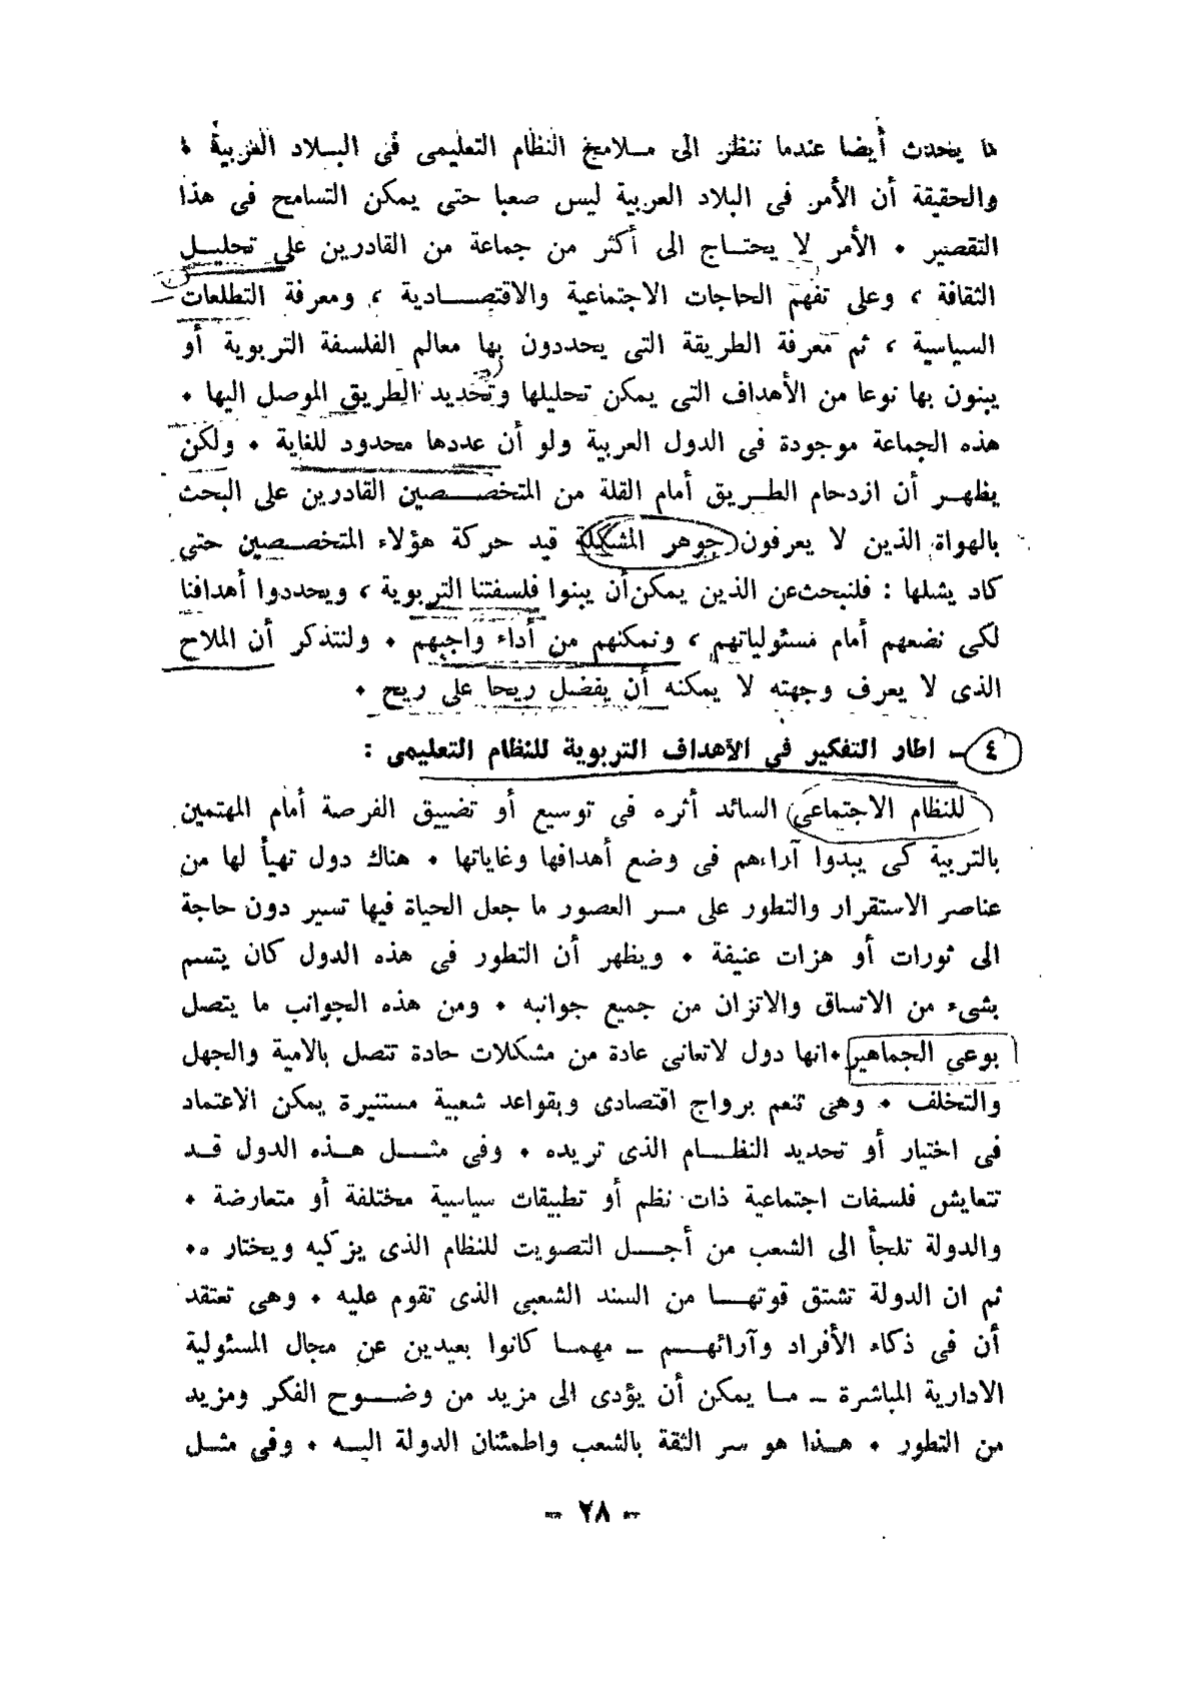 ما يحدث أيضا عندما ننظر الى ملامح النظام التعليمى فى البلاد العربية .
والحقيقة أن الأمر فى البلاد العربية ليس صعبا حتى يمكن التسامح فى هذا
التقصير . الأمر لا يحتاج الى أكثر من جماعة من القادرين على تحليل
الثقافة ، وعلى تفهم الحاجات الاجتماعية والاقتصادية ، ومعرفة التطلعات
السياسية ، ثم معرفة الطريقة التى يحددون بها معالم الفلسفة التربوية أو
يبنون بها نوعا من الأهداف التى يمكن تحليلها وتحديد الطريق الموصل اليها .
هذه الجماعة موجودة فى الدول العربية ولو أن عددها محدود للغاية . ولكن
يظهر أن ازدحام الطريق أمام القلة من المتخصصين القادرين على البحث
بالهواة الذين لا يعرفون جوهر المشكلة قيد حركة هؤلاء المتخصصين حتى
كاد يشلها : فلنبحث عن الذين يمكن أن يبنوا فلسفتنا التربوية ، ويحددوا أهدافنا
لكى نضعهم أمام مسئولياتهم ، ونمكنهم من أداء واجبهم . ولنتذكر أن الملاح
الذى لا يعرف وجهته لا يمكنه أن يفضل ريحا على ريح .
٤ - اطار التفكير فى الأهداف التربوية للنظام التعليمى :
للنظام الاجتماعى السائد أثره فى توسيع أو تضييق الفرصة أمام المهتمين
بالتربية كى يبدوا آراءهم فى وضع أهدافها وغاياتها . هناك دول تهيأ لها من
عناصر الاستقرار والتطور على مر العصور ما جعل الحياة فيها تسير دون حاجة
الى ثورات أو هزات عنيفة . ويظهر أن التطور فى هذه الدول كان يتسم
بشىء من الاتساق والاتزان من جميع جوانبه . ومن هذه الجوانب ما يتصل
بوعى الجماهير . انها دول لاتعانى عادة من مشكلات حادة تتصل بالامية والجهل
والتخلف . وهى تنعم برواج اقتصادى وبقواعد شعبية مستنيرة يمكن الاعتماد
فى اختيار أو تحديد النظام الذى تريده . وفى مثل هذه الدول قد
تتعايش فلسفات اجتماعية ذات نظم أو تطبيقات سياسية مختلفة أو متعارضة .
والدولة تلجأ الى الشعب من أجل التصويت للنظام الذى يزكيه ويختاره .
ثم ان الدولة تشتق قوتها من السند الشعبى الذى تقوم عليه . وهى تعتقد
أن فى ذكاء الأفراد وآرائهم - مهما كانوا بعيدين عن مجال المسئولية
الادارية المباشرة - ما يمكن أن يؤدى الى مزيد من وضوح الفكر ومزيد
من التطور . هذا هو سر الثقة بالشعب واطمئنان الدولة اليه . وفى مثل
- ٢٨ -